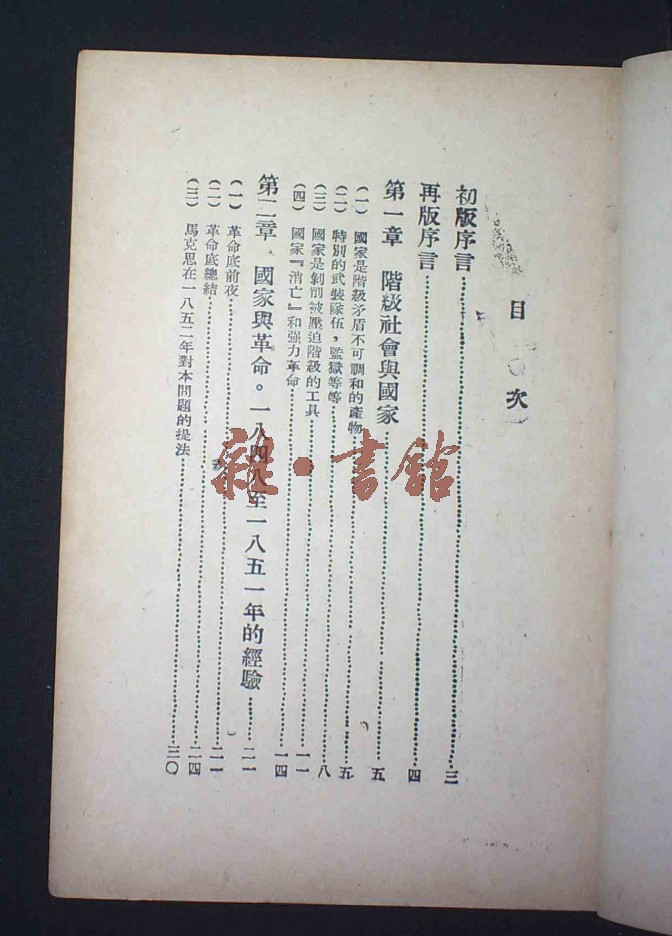 目次
初版序言……三
再版序言……四
第一章 階級社會與國家……五
(一) 國家是階級矛盾不可調和的產物……五
(二) 特別的武裝隊伍，監獄等等……八
(三) 國家是剝削被壓迫階級的工具……一一
(四) 國家『消亡』和强力革命……一四
第二章 國家與革命。一八四八至一八五一年的經驗……二一
(一) 革命底前夜……二一
(二) 革命底總結……二四
(三) 馬克思在一八五二年對本問題的提法……三〇
雜·書館